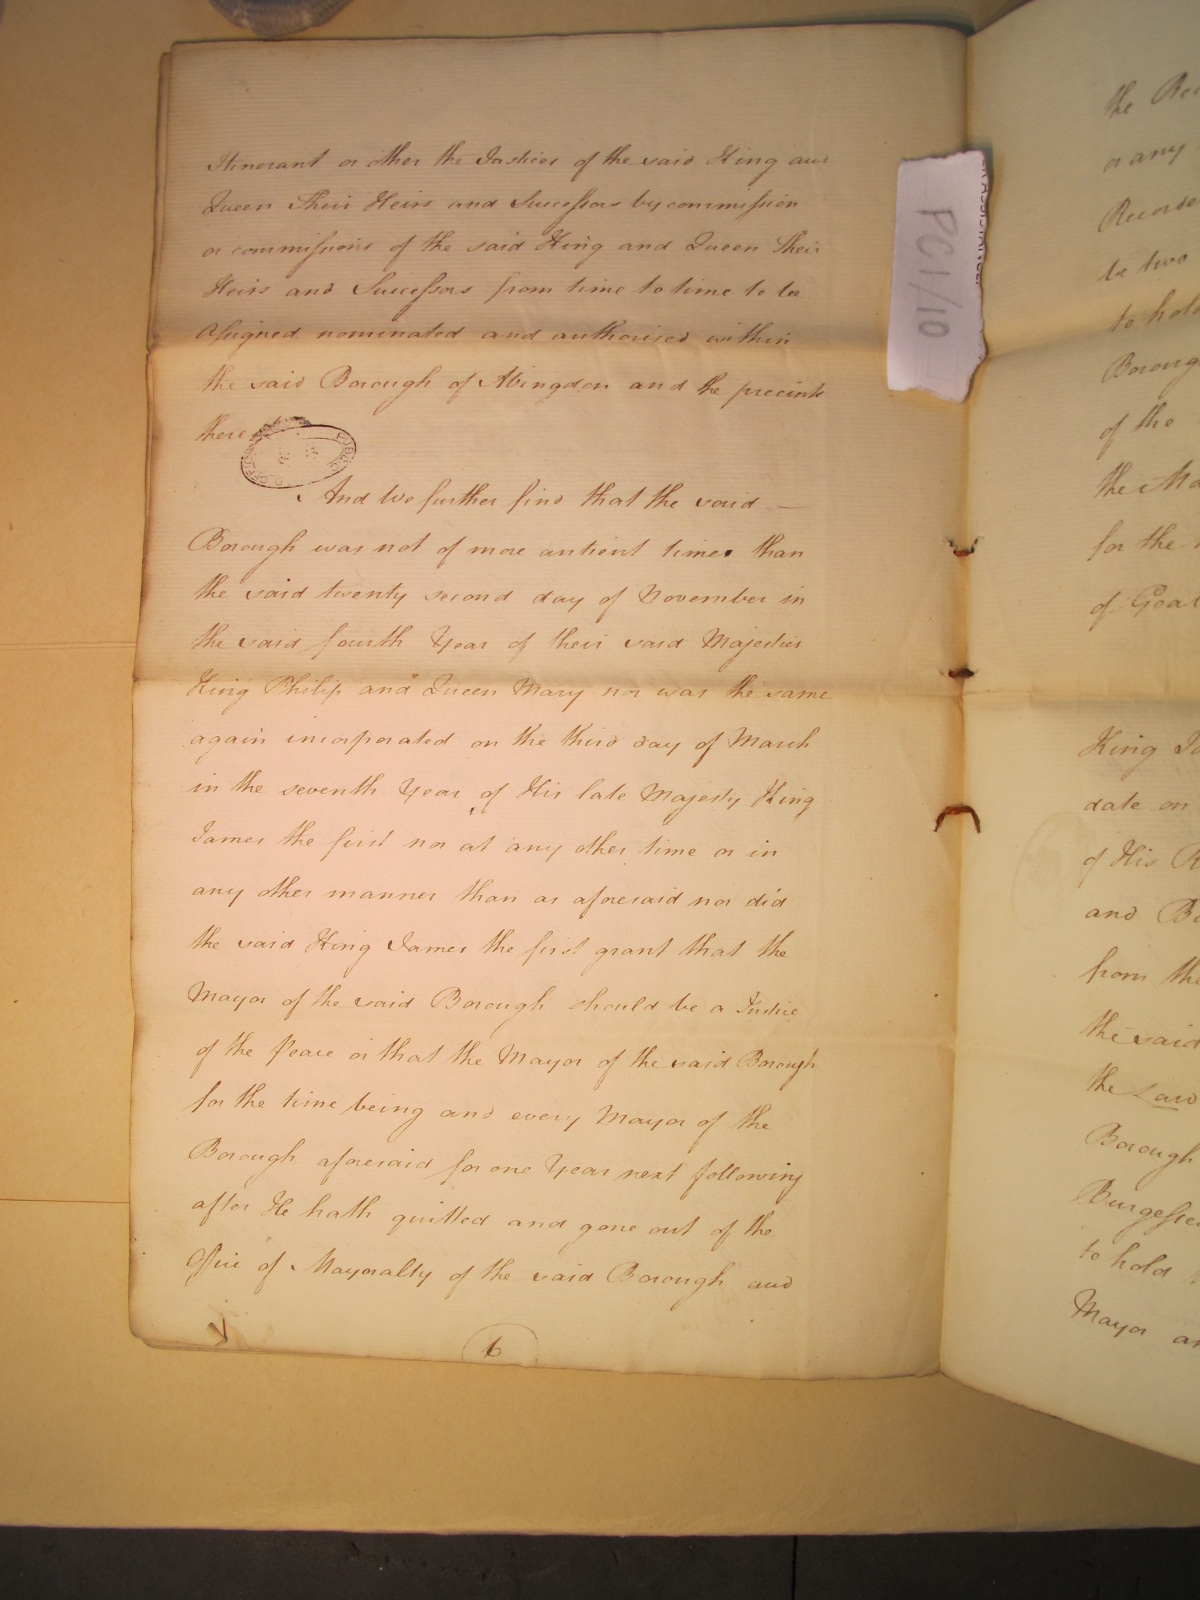 Itinerant or other the Justices of the said King and
Queen Their Heirs and Successors by commission
or commissions of the said King and Queen Their
Heirs and Successors from time to time to be
Assigned nominated and authorised within
the said Borough of Abingdon and the precints
there
And We further find that the said —
Borough was not of more antient time than
the said twenty second day of November in
the said fourth Year of their said Majesties
King Philip and Queen Mary nor was the same
again incorporated on the third day of March
in the seventh Year of His late Majesty King
James the first nor at any other time or in
any other manner than as aforesaid nor did
the said King James the first grant that the
Mayor of the said Borough should be a Justice
of the Peace or that the Mayor of the said Borough
for the time being and every Mayor of the
Borough aforesaid for one Year next following
after He hath quitted and gone out of the
Office of Mayoralty of the said Borough and
6
PC1/10
the
or any
be two
to hold
of the
for the
of Goal
King
date on
of His
and
from the
the said
the Law
Borough
to hold
Mayor